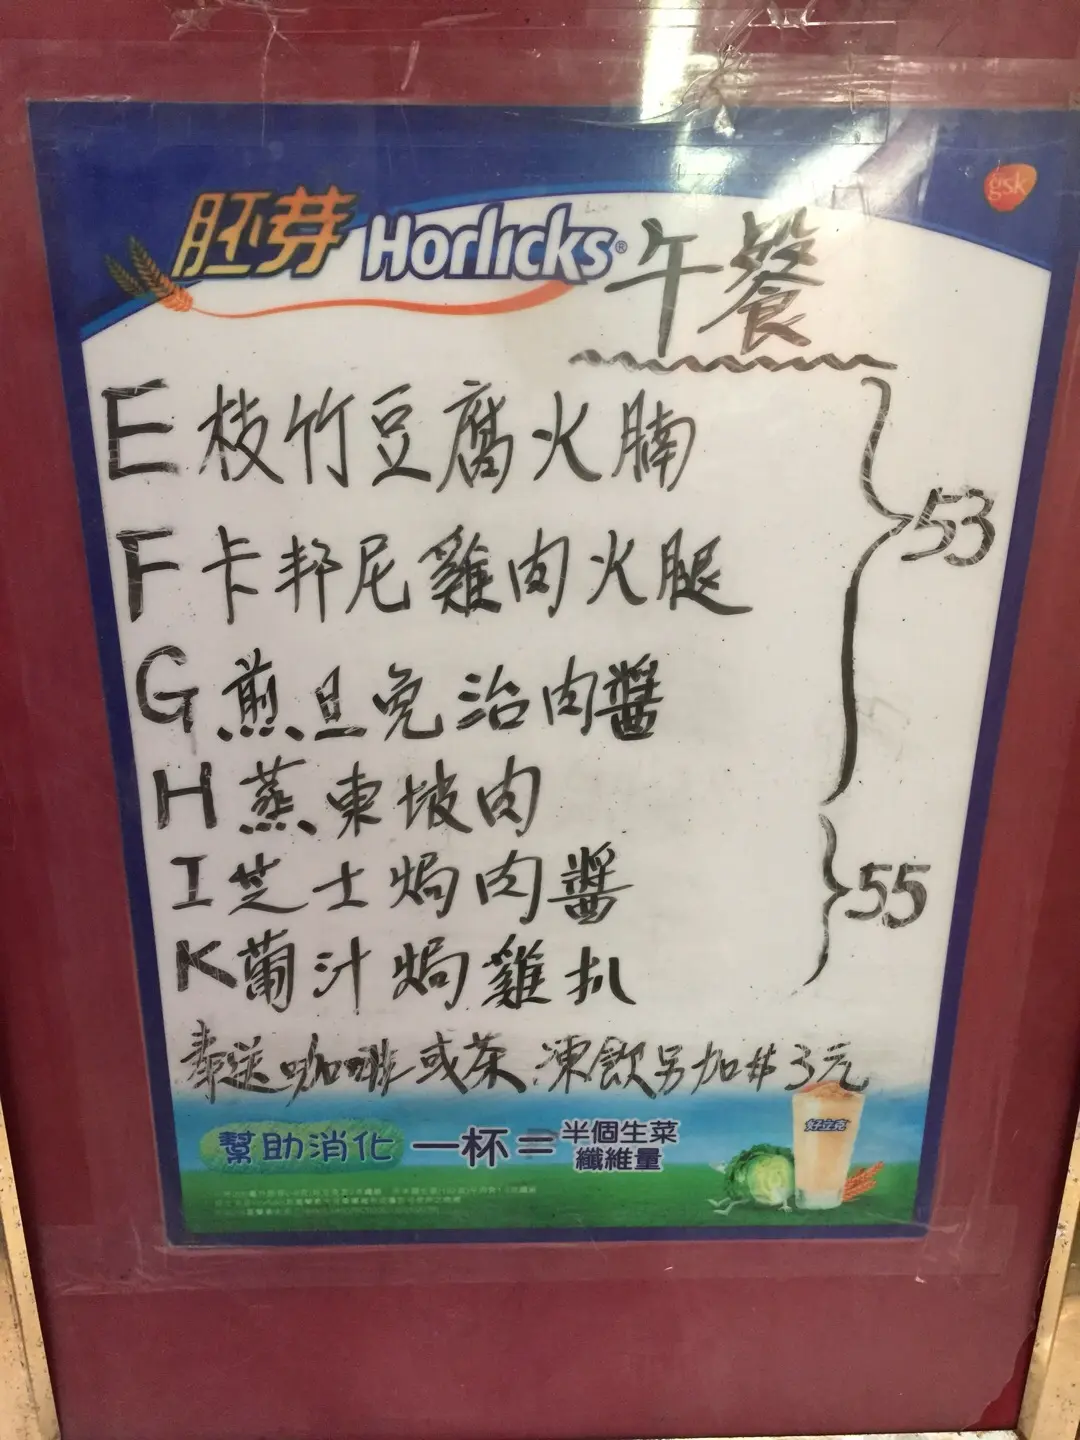 胚芽 Horlicks® 午餐
gsk
E 枝竹豆腐火腩
F 卡邦尼雞肉火腿
G 煎旦免治肉醬
53
H 蒸東坡肉
I 芝士焗肉醬
K 葡汁焗雞扒
55
奉送咖啡或茶 凍飲另加#3元
幫助消化 一杯=半個生菜纖維量
好立克